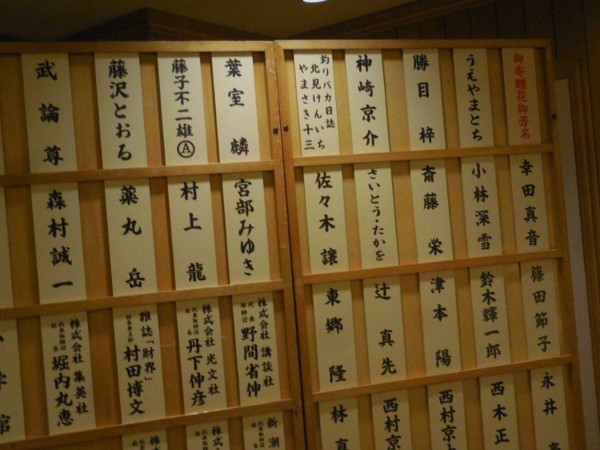 御寄贈花御芳名
うえやまとち
勝目 梓
神崎京介
釣りバカ日誌
北見けんいち
やまさき十三
葉室 麟
藤子不二雄Ⓐ
藤沢とおる
武論尊
幸田真音
小林深雪
斎藤 栄
さいとう・たかを
佐々木 譲
宮部みゆき
村上 龍
薬丸 岳
森村誠一
篠田節子
鈴木輝一郎
津本 陽
辻 真先
東郷 隆
株式会社 講談社
代表取締役
社長
野間省伸
株式会社 光文社
代表取締役
社長
丹下伸彦
雑誌「財界」
村田博文
株式会社 集英社
代表取締役
社長
堀内丸恵
永井
西木正
西村京
西村京
林 真
新潮
株式会社
株式会社